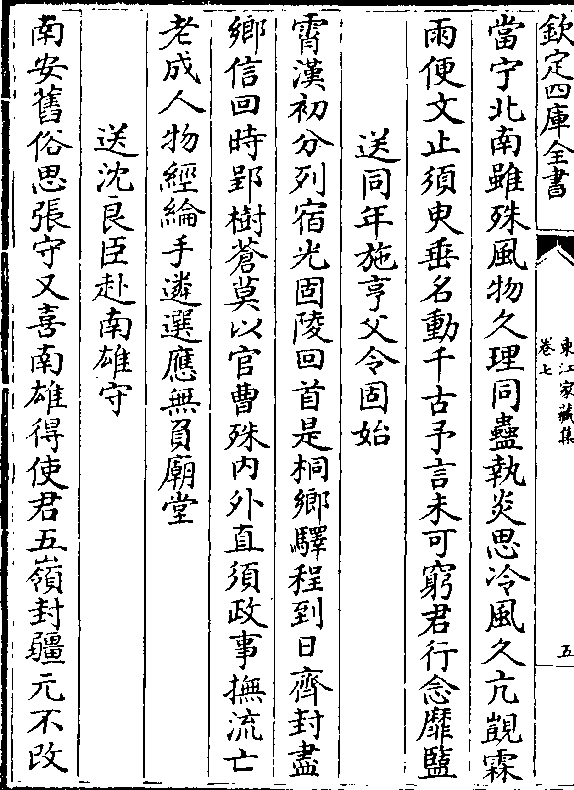 欽定四庫全書
東江家藏集
卷七
五
當宁北南雖殊風物久理同蠱執炎思冷風久亢覬霖
雨便文止須臾垂名動千古予言未可窮君行念靡盬
送同年施亨父令固始
霄漢初分列宿光固陵回首是桐鄉驛程到日齊封盡
鄉信回時郢樹蒼莫以官曹殊内外直須政事撫流亡
老成人物經綸手遴選應無負廟堂
送沈良臣赴南雄守
南安舊俗思張守又喜南雄得使君五嶺封疆元不改